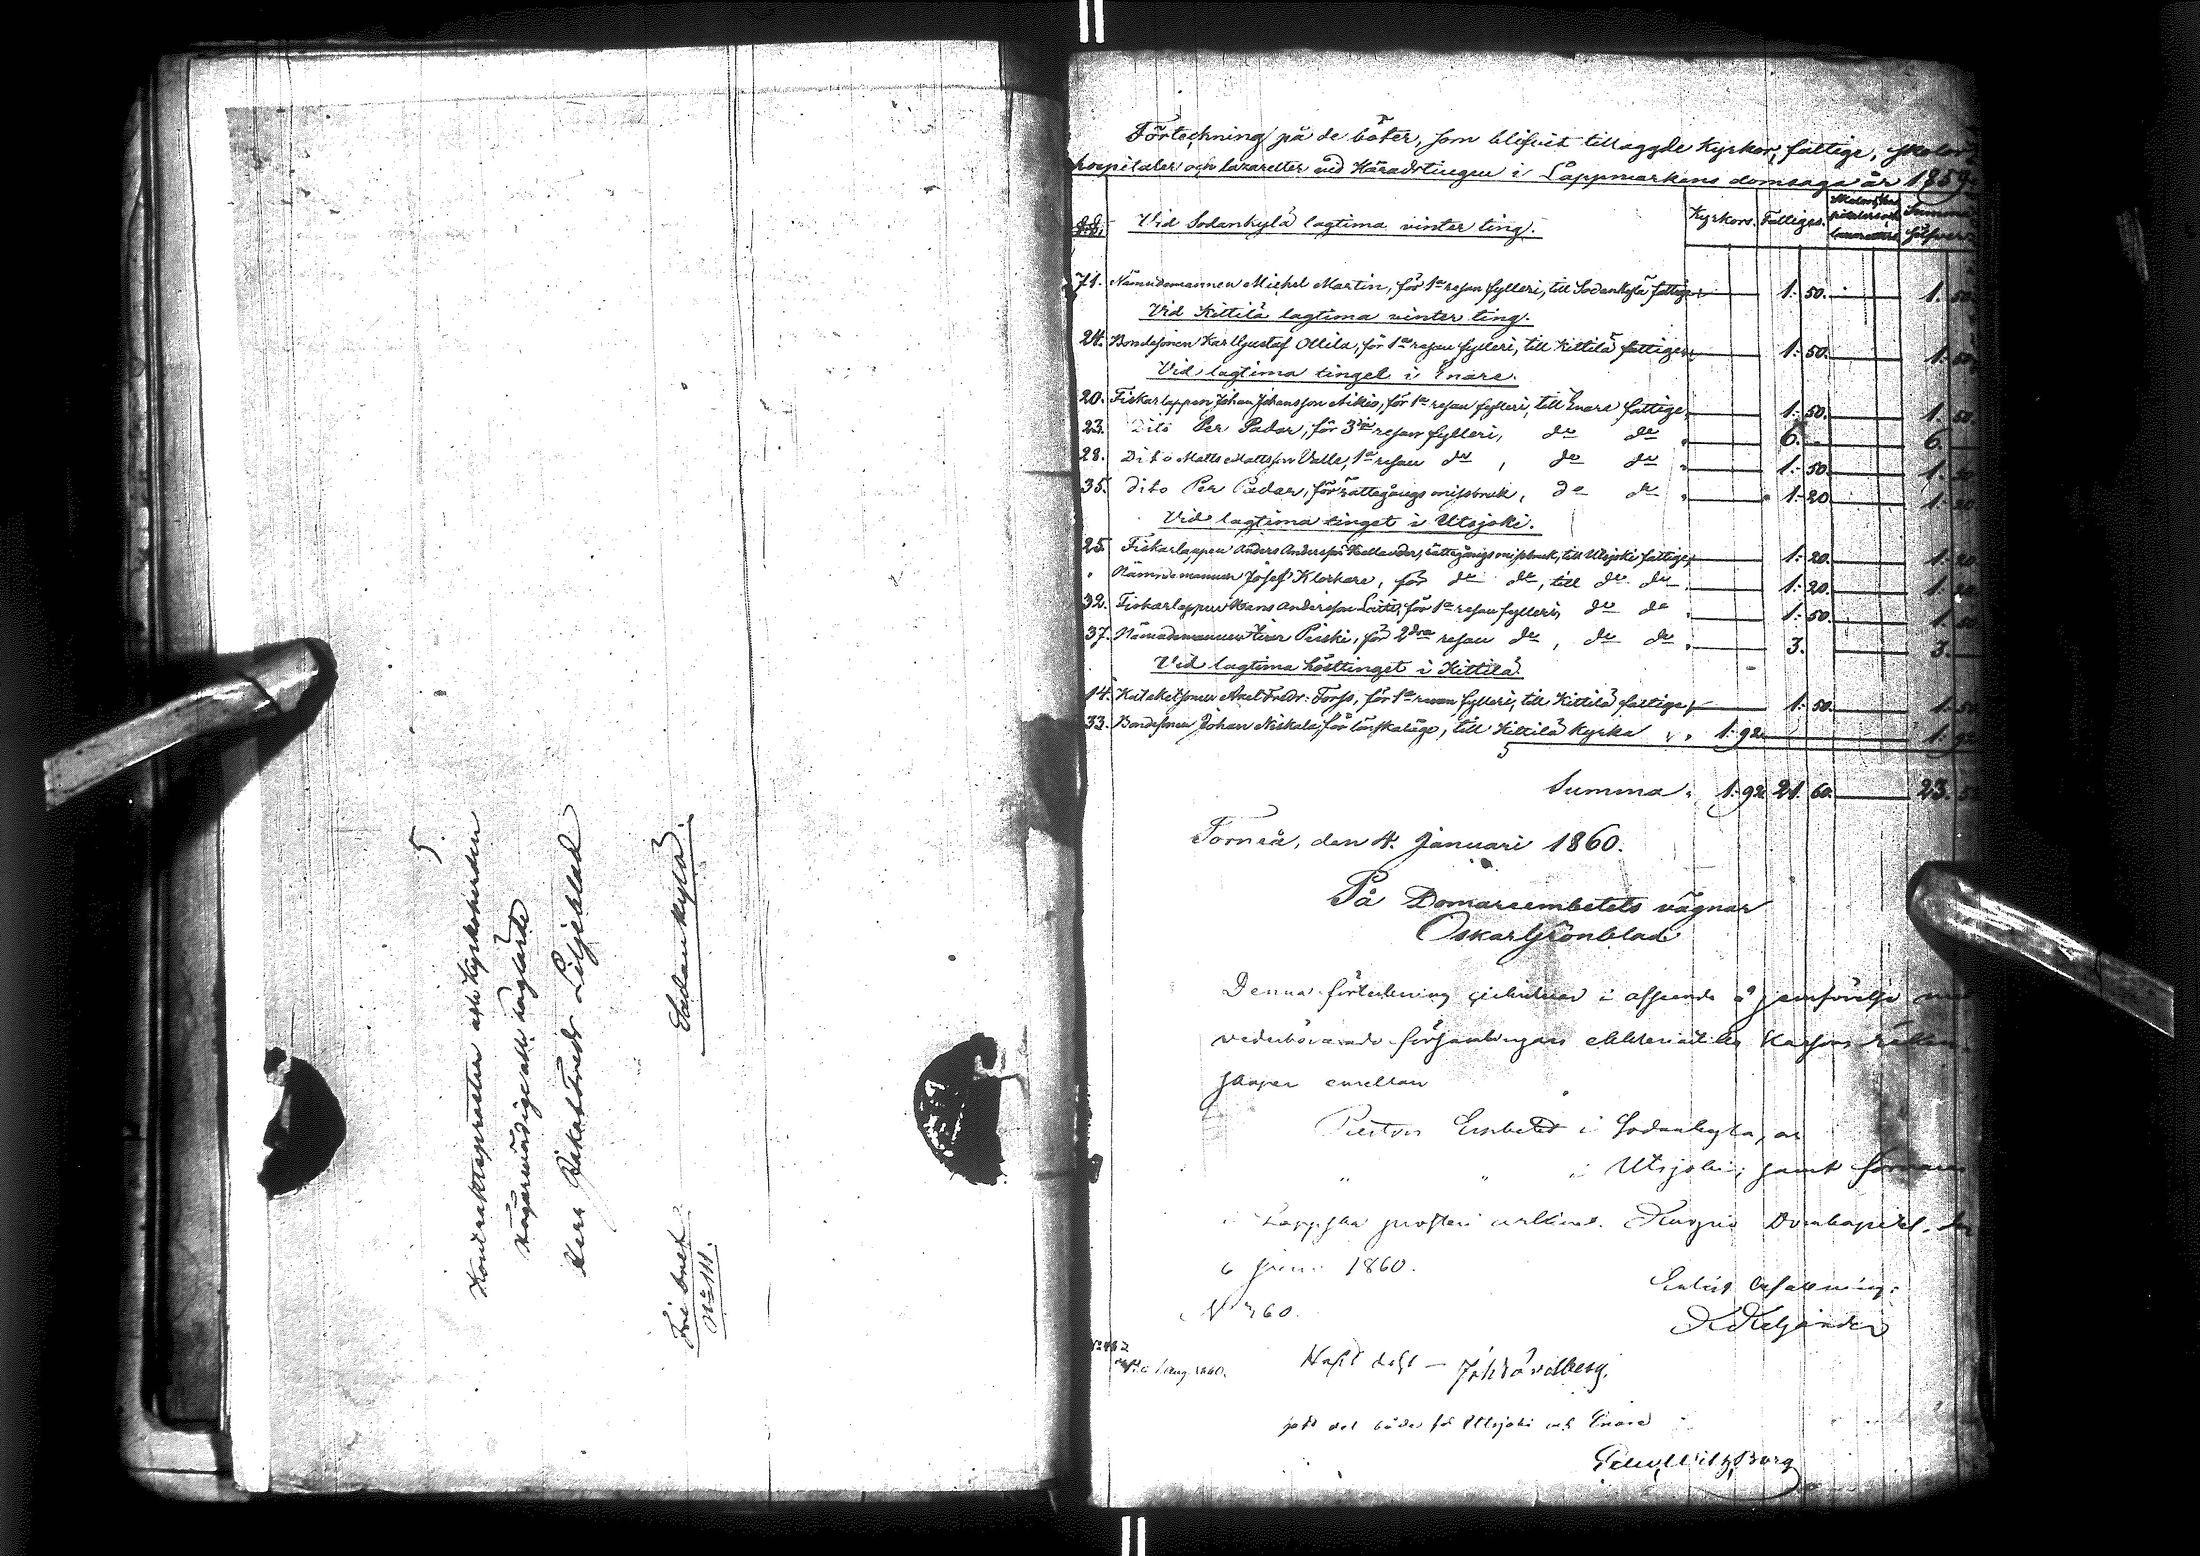 5.
Kontraktsprosten och Kyrkoherden
Högvördige och höglärde
Herr Jakob Fredr. Liljeblad
Sodankylä.
Fribref
No 111.
Förteckning på de böter, som blifvit tillagde Kyrkor, fattige, skolor,
hospitaler och lazaretter vid Häradstingen i Lappmarkens domsaga år 1859.
§.§. Vid Sodankylä lagtima vinter ting. Kyrkors. Fattiges. Skolors, hospitalers och lazaretters Summa Silfver
71. Nämndemannen Michel Martin, för 1a resan fylleri, till Sodankylä fattige 1. 50. 1. 50
Vid Kittilä lagtima vinter ting.
24. Bondesonen Karl Gustaf Ollila, för 1a resan fylleri, till Kittilä fattige 1. 50. 1. 50
Vid lagtima tinget i Enare.
20. Fiskarlappen Johan Johansson Aikio, för 1a resan fylleri, till Enare fattige 1. 50. 1. 50
23. Dito Per Padar, för 3dje resan fylleri, do do 6. 6.
28. Dito Matts Mattsson Valle, 1a resan do, do do 1. 50. 1. 50
35. Dito Per Padar, för rättegångs missbruk, do do 1. 20 1. 20
Vid lagtima tinget i Utsjoki.
25. Fiskarlappen Anders Andersson Hellander, rättegångs missbruk, till Utsjoki fattige 1. 20. 1. 20
" Nämndemannen Josef Klerkare, för do do, till do do 1. 20 1. 20
32. Fiskarlappen Hans Andersson Laiti, för 1a resan fylleri, do do 1. 50 1. 50
37. Nämndemannen Piski, för 2dra resan do, do do 3. 3.
Vid lagtima hösttinget i Kittilä.
14. Kateketsonen Axel Fredr. Forss, för 1a resan fylleri, till Kittilä fattige 1. 50. 1. 50
33. Bondesonen Johan Niskala, för lönskaläge, till Kittilä Kyrka 1. 92 1. 92
Summa 1. 92 21. 60. 23. 52
Torneå, den 4. Januari 1860.
På Domareembetets vägnar
Oskar Grönblad
Denna förteckning cirkulerar i afseende å jemförelse med
vederbörande församlingars ecklesiastika Kassors räken-
skaper emellan
Pastors Embetet i Sodankylä, och
" " i Utsjoki, samt förvaras
i Lappska prosteri arkivet. Kuopio Domkapitel, den
6 Juni 1860.
No 760.
Enligt befallning:
K Keljander
1 Aug. 1860.
Utsjoki och Enare